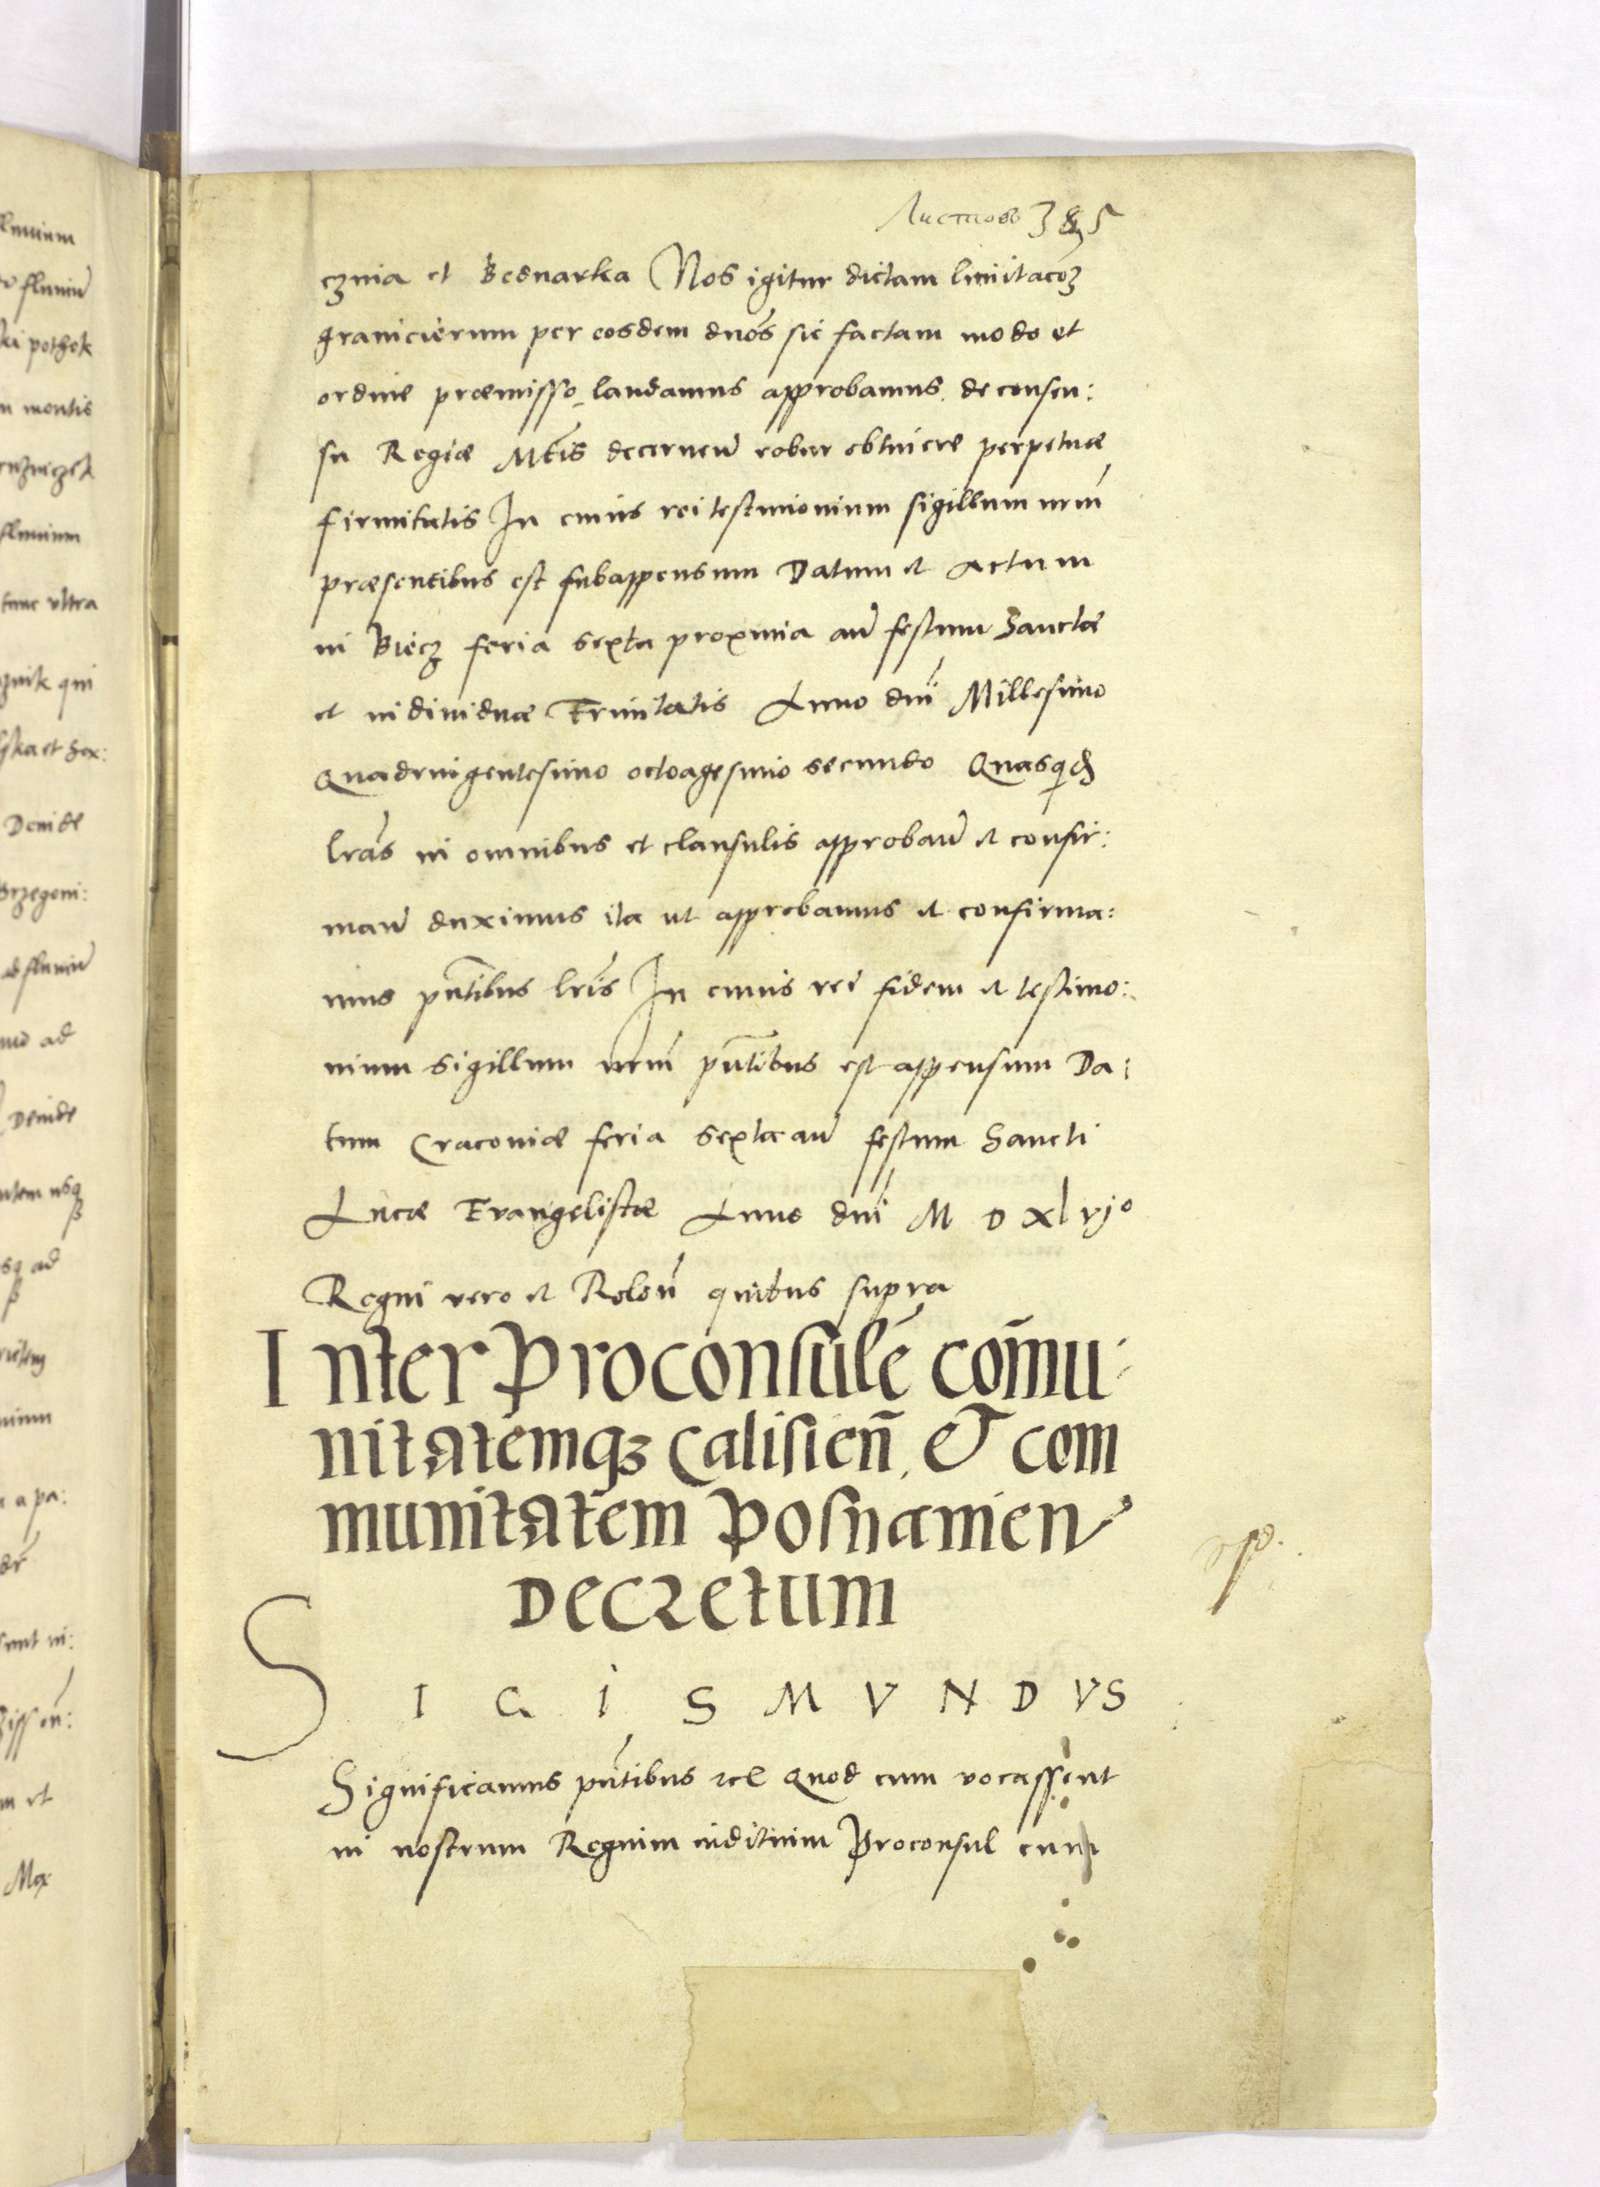 Листовъ 385
cznia et Bednarka Nos igitur dictam limitacoẽz
granicierum per eosdem dnõs sic factam modo et
ordine præmisso laudamus approbamus de consen:
su Regiæ Mtis decernen̄ robur obtinere perpetuæ
firmitatis In cuius rei testimonium sigillum nrm̃
præsentibus est subappensum Datum et Actum
in Biecz feria sexta proxima an̄ festum Sanctæ
et individuæ Trinitatis Anno dnĩ Millesimo
Quadringentesimo octoagesimo secundo Quasqd̃
lrãs in omnibus et clausulis approban̄ et confir:
man̄ duximus ita ut approbamus et confirma:
mus pñtibus lrĩs In cuius rei fidem et testimo:
nium sigillum nrm̃ pñtibus est appensum Da:
tum Cracoviæ feria sexta an̄ festum Sancti
Lucæ Evangelistæ Anno dnĩ M D xlvjo
Regni vero et Relon̄ quibus supra
Inter Proconsulẽ cõmu:
nitatemqz Calisien̄, & com
munitatem Posnanien
Decretum
SIGISMVNDVS
Significamus pñtibus etc Quod cum vocassent
in nostrum Regium iuditium Proconsul cum
fluvium
fluviũ
pothok
montis
fluvium
tunc ultra
qui
et Sex:
Deinde
ad fluviũ
ad
Deinde
usq
ad
a pa:
sunt in:
et
Mox